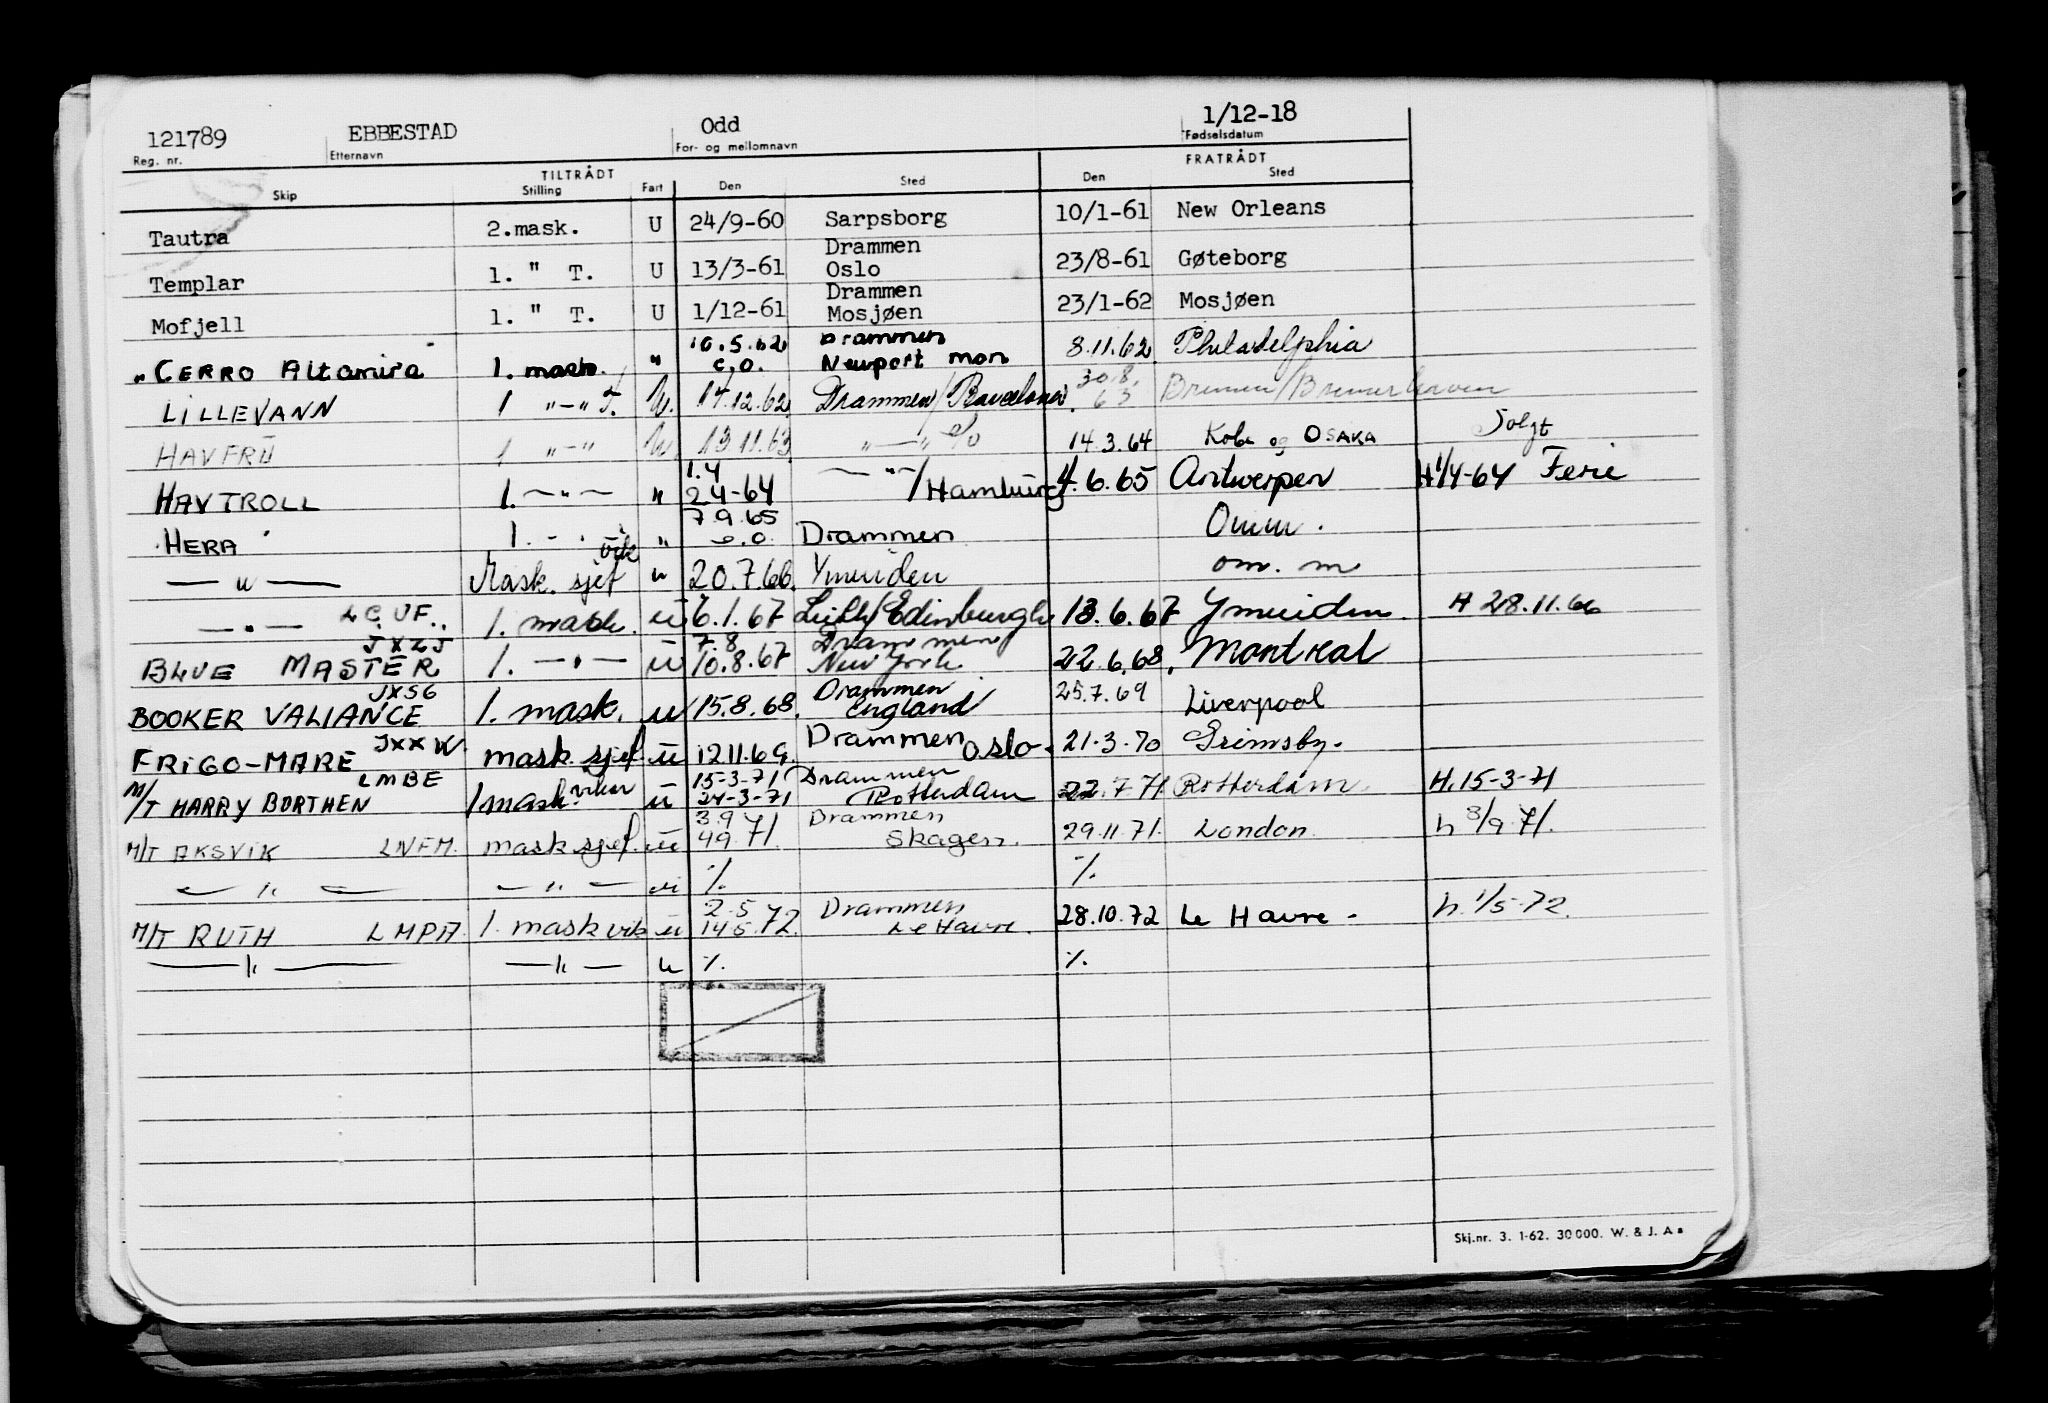 121789 EBBESTAD Odd 1/12-18
Reg. nr. Etternavn For- og mellomnavn Fødselsdatum
TILTRÅDT FRATRÅDT
Skip Stilling Fart Den Sted Den Sted
Tautra 2.mask. U 24/9-60 Sarpsborg 10/1-61 New Orleans
Drammen
Templar 1. " T. U 13/3-61 Oslo 23/8-61 Gøteborg
Drammen
Mofjell 1. " T. U 1/12-61 Mosjøen 23/1-62 Mosjøen
10.5.62 Drammen
" CERRO Altamira 1. mask. " c.o. Newport mon 8.11.62 Philadelphia
LILLEVANN 1 "-" T. U. 17.12.62 Drammen/Barcelona. 30.8.63 Bremen/Bremerhaven
HAVFRU 1 "-" U. 13.11.63 "—" c/o 14.3.64 Kobe og OSAKA Solgt
1.4
HAVTROLL 1. -"- " 24-64 —"—/Hamburg 4.6.65 Antwerpen H 1/4-64 Ferie
7.9.65
HERA 1. - " - " c.o. Drammen Omm.
—"— Mask. sjef vik " 20.7.66. Ymuiden om. m
—"— LCUF. 1. mask. u 6.1.67 Leith/Edinburgh 13.6.67 Ymuiden H 28.11.66
JXZJ 7.8 Drammen
BLUE MASTER 1. —"— u 10.8.67 New York 22.6.68. Montreal
JXSG Drammen
BOOKER VALIANCE 1. mask. u 15.8.68. England 25.7.69 Liverpool
FRIGO-MARE JXXW. mask. sjef. u 12.11.69. Drammen Oslo. 21.3.70 Grimsby.
LMBE vikar 15-3-71 Drammen
M/T HARRY BORTHEN 1 mask. u 24-3-71 Rotterdam 22.7.71 Rotterdam. H. 15-3-71
3.9 Drammen
M/T AKSVIK LNFM. mask sjef. u 4.9.71. Skagen. 29.11.71. London. h 3/9.71.
—"— —"— u %. %.
2.5 Drammen
M/T RUTH LMPA. 1. mask vik u 14.5.72. Le Havre. 28.10.72 Le Havre - h. 1/5-72.
—"— —"— u %. %.
Skj.nr. 3. 1-62. 30000. W. & J. A s